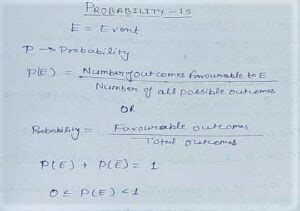 PROBABILITY -15
E = Event
P → Probability
P(E) = Number of outcomes favourable to E
Number of all possible outcomes
OR
Probability = Favoureable outcomes
Total outcomes
P(E) + P(E̅) = 1
0 ≤ P(E) < 1